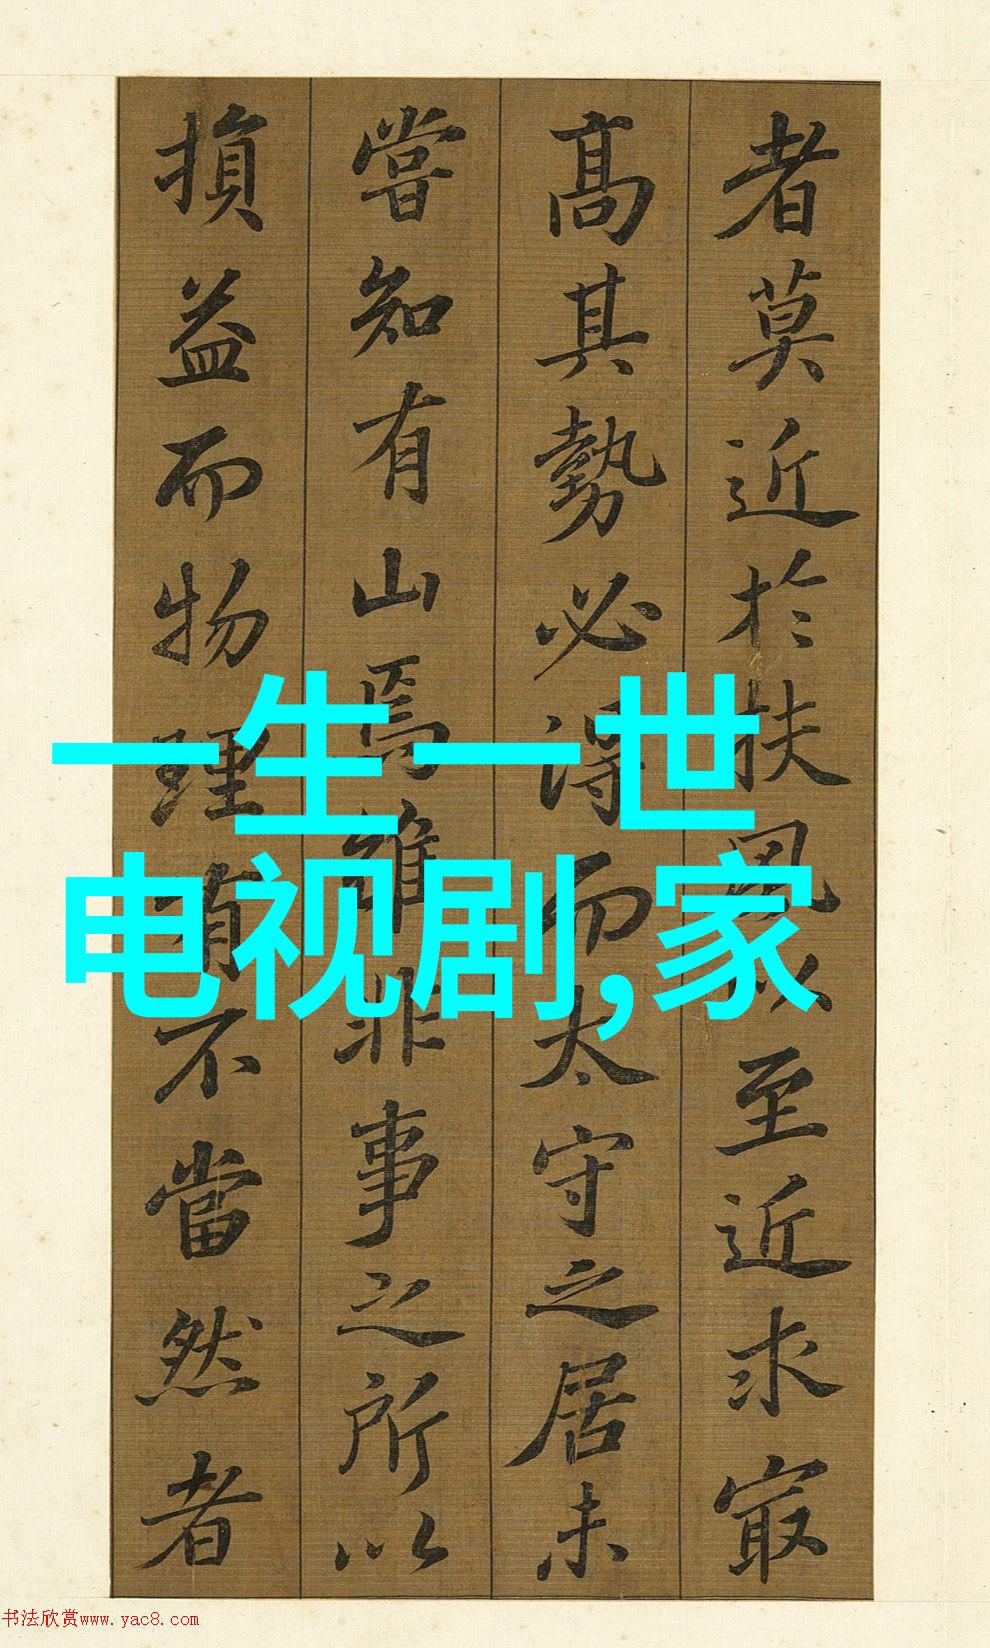 者莫近於扶風以至近求寂
高其勢必得而太守之居未
嘗知有山焉雖非事之所以
損益而物理有不當然者
一生一世
电视剧,家
书法欣赏www.yac8.com